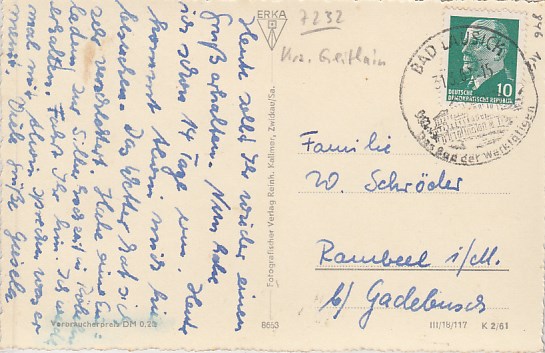 Heute sollt Ihr wieder einen
Gruß erhalten. Nun habe
ich schon 14 Tage um. Heute
kommt Alwin mich hier
besuchen. Das Wetter hat sich
sehr verschlechtert. Habe eine Ein-
ladung zur Silberhochzeit in
erhalten. Fahrt Ihr hin. Ich werde
mal mit Alwin sprechen was er
meint. Viele Grüße Gisela
Verbraucherpreis DM 0,25
ERKA
Fotografischer Verlag Reinh. Kallmer, Zwickau/Sa.
8663
7232
Krs. Geithain
846
BAD LAUSICK
Das Bad der Werktätigen
10
DEUTSCHE
DEMOKRATISCHE REPUBLIK
Familie
W. Schröder
Rambeel i/M.
b/ Gadebusch
III/18/117 K 2/61